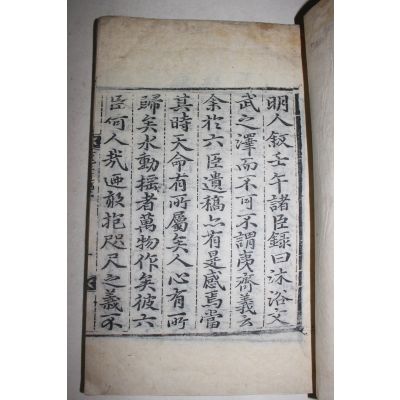 明人敍壬午諸臣錄曰沐浴文
武之澤而不可不謂夷齊義云
余於六臣遺稿亦有是感焉當
其時天命有所屬矣人心有所
歸矣水動搖者萬物作矣彼六
臣何人哉迺敢抱咫尺之義不